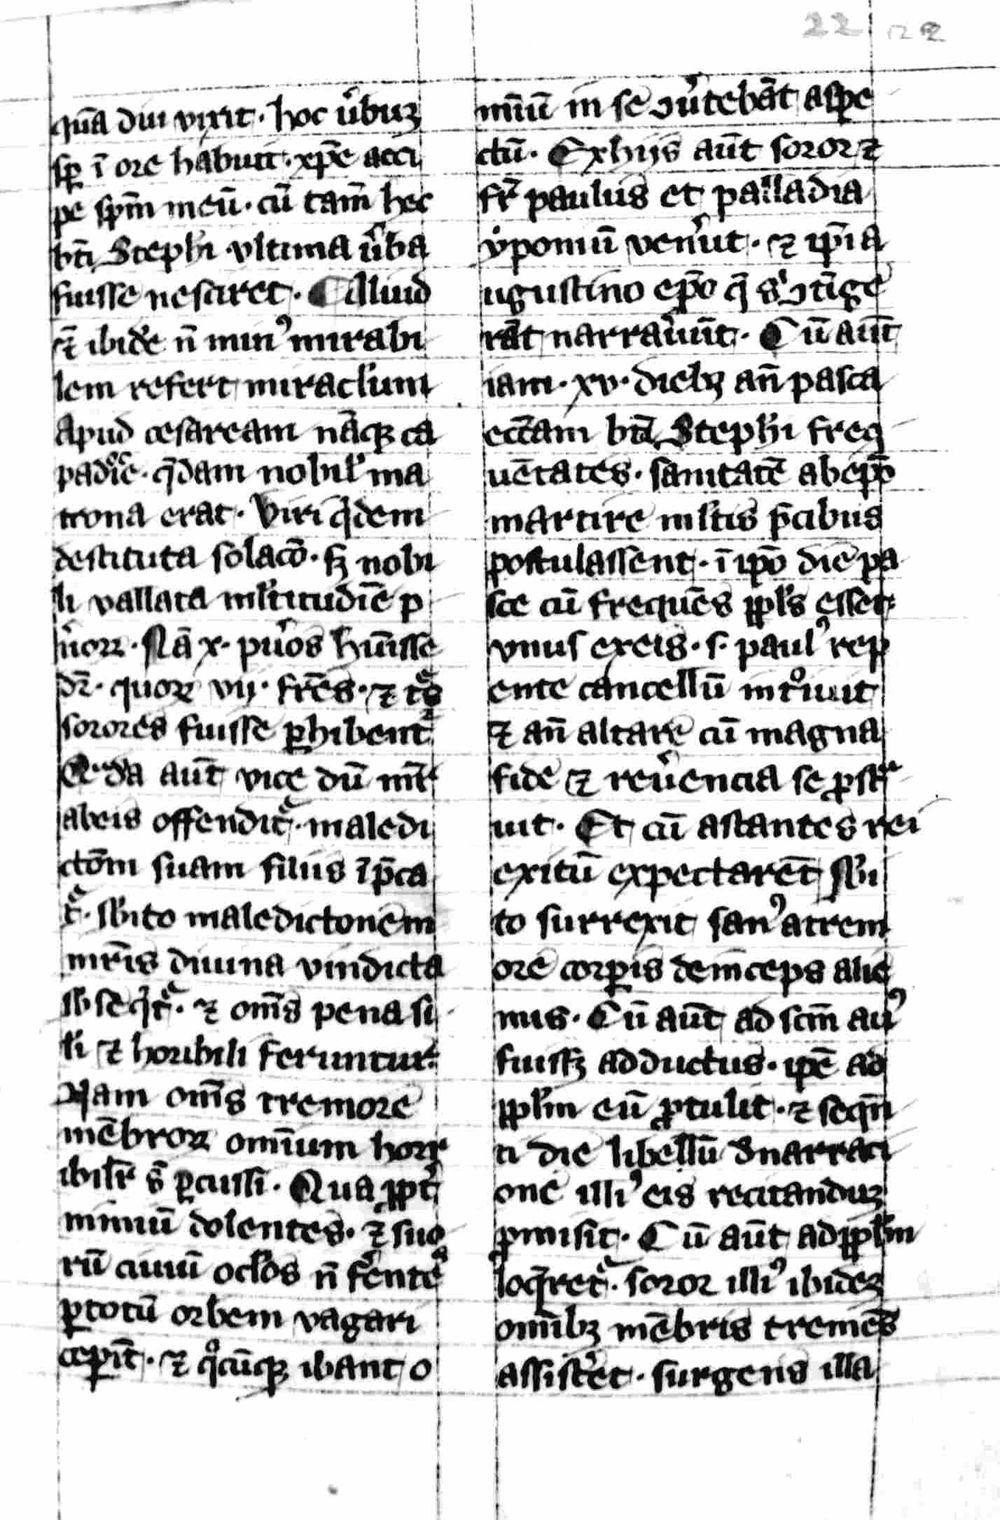 22 22
qua̅ diu vixit · hoc u̓bu₃
sp̱ i̅ ore habuit · xp̅e acci
pe sp̅m meu̅ · cu̅ tam̅ hec
bt̅i Steph̅i vltima u̓ba
fuisse nesciret · Aliud
⁊̅ ibide̅ n̅ min⁹ mirabi
lem refert miracl̅um
Apud cesaream na̅q₃ ca
padoc̅e · q̅dam nobil̓ ma
trona erat · Viri q̅dem
destituta solaco̅ · s₃ nobi
li vallata ml̅titudi̅e p
u̓oꝝ · Na̅ x · pu̓os hu̅isse
dr̅ · quoꝝ vij · fr̅es · ⁊ t̓s
sorores fuisse ꝑhibent᷑
Q̅da̅ aut̅ vice du̅ mr̅
abeis offendit᷑ · maledi
cto̅m suam filiis i̅p̅ca
t᷑ · sb̅ito maledictonem
mr̅is diuina vindicta
sb̅seq̅t᷑ · ⁊ om̅s pena si
l̅i ⁊ horibili feruntur
Nam om̅s tremore
me̅broꝝ omnium horr
ibil̅r s̅ ꝑcussi · Qua ꝓpt̓
nimiu̅ dolentes · ⁊ suo
ru̅ ciuiu̅ ocl̅os n̅ fe̓nte̅
ꝑ totu̅ orbem vagari
ceꝑu̅t · ⁊ q̊cu̅q₃ ibant o
mniu̅ in se ꝯu̓teba̅t aspe
ctu̅ · Ex hijs aut̅ soror ⁊
fr̅ paulus et palladia
yponiu̅ vene̓ut · ⁊ ip̅i a
ugustino ep̅o q̅ s̓ ꝯti̅ge
ra̅t narraueru̅t · Cu̅ aut̅
iam · xv · dieb₃ an̅ pasca
ecc̅am bt̅i Steph̅i freq
ue̅tates · sanitate̅ ab ep̅o
martire mltis p̅cibus
postulassent · i̅ ip̅o die pa
sce cu̅ freque̅s ppl̅s esset
vnus exeis · s · paul⁹ rep
ente cancellu̅ intr̊iuit
⁊ an̅ altare cu̅ magna
fide ⁊ reue̓ncia se ꝓstr̅
uit · Et cu̅ astantes rei
exitu̅ expectare̅t sb̅i
to surrexit san⁹ a trem
ore corꝑis deinceps alie
nus · Cu̅ aut̅ ad sc̅m au⁹
fuiss₃ adductus · ip̅e ad
ppl̅m eu̅ ꝓtulit · ⁊ seque̅
ti die libellu̅ d̓ narraci
one illi⁹ eis recitandu₃
ꝓmisit · Cu̅ aut̅ ad ppl̅m
loq̅ret᷑ · soror illi⁹ ibide₃
omnib₃ me̅bris treme̅s
assiste̓t · surgens illa